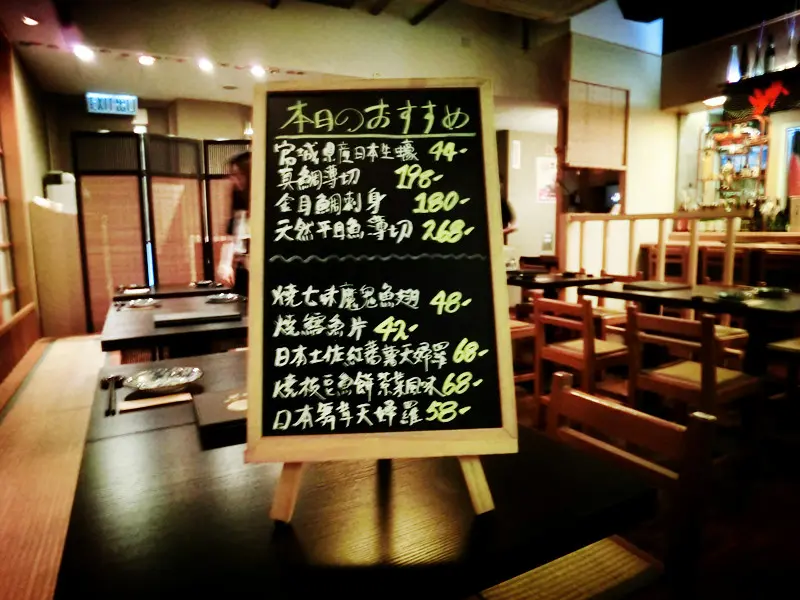 EXIT 出口
本日のおすすめ
宮城県産日本生蠔 44-
真鯛薄切 198-
金目鯛刺身 180-
天然平目魚薄切 268-
燒七味魔鬼魚翅 48-
燒鱈魚片 42-
日本土佐紅蕃薯天婦羅 68-
燒枝豆魚餅京菜風味 68-
日本舞茸天婦羅 58-